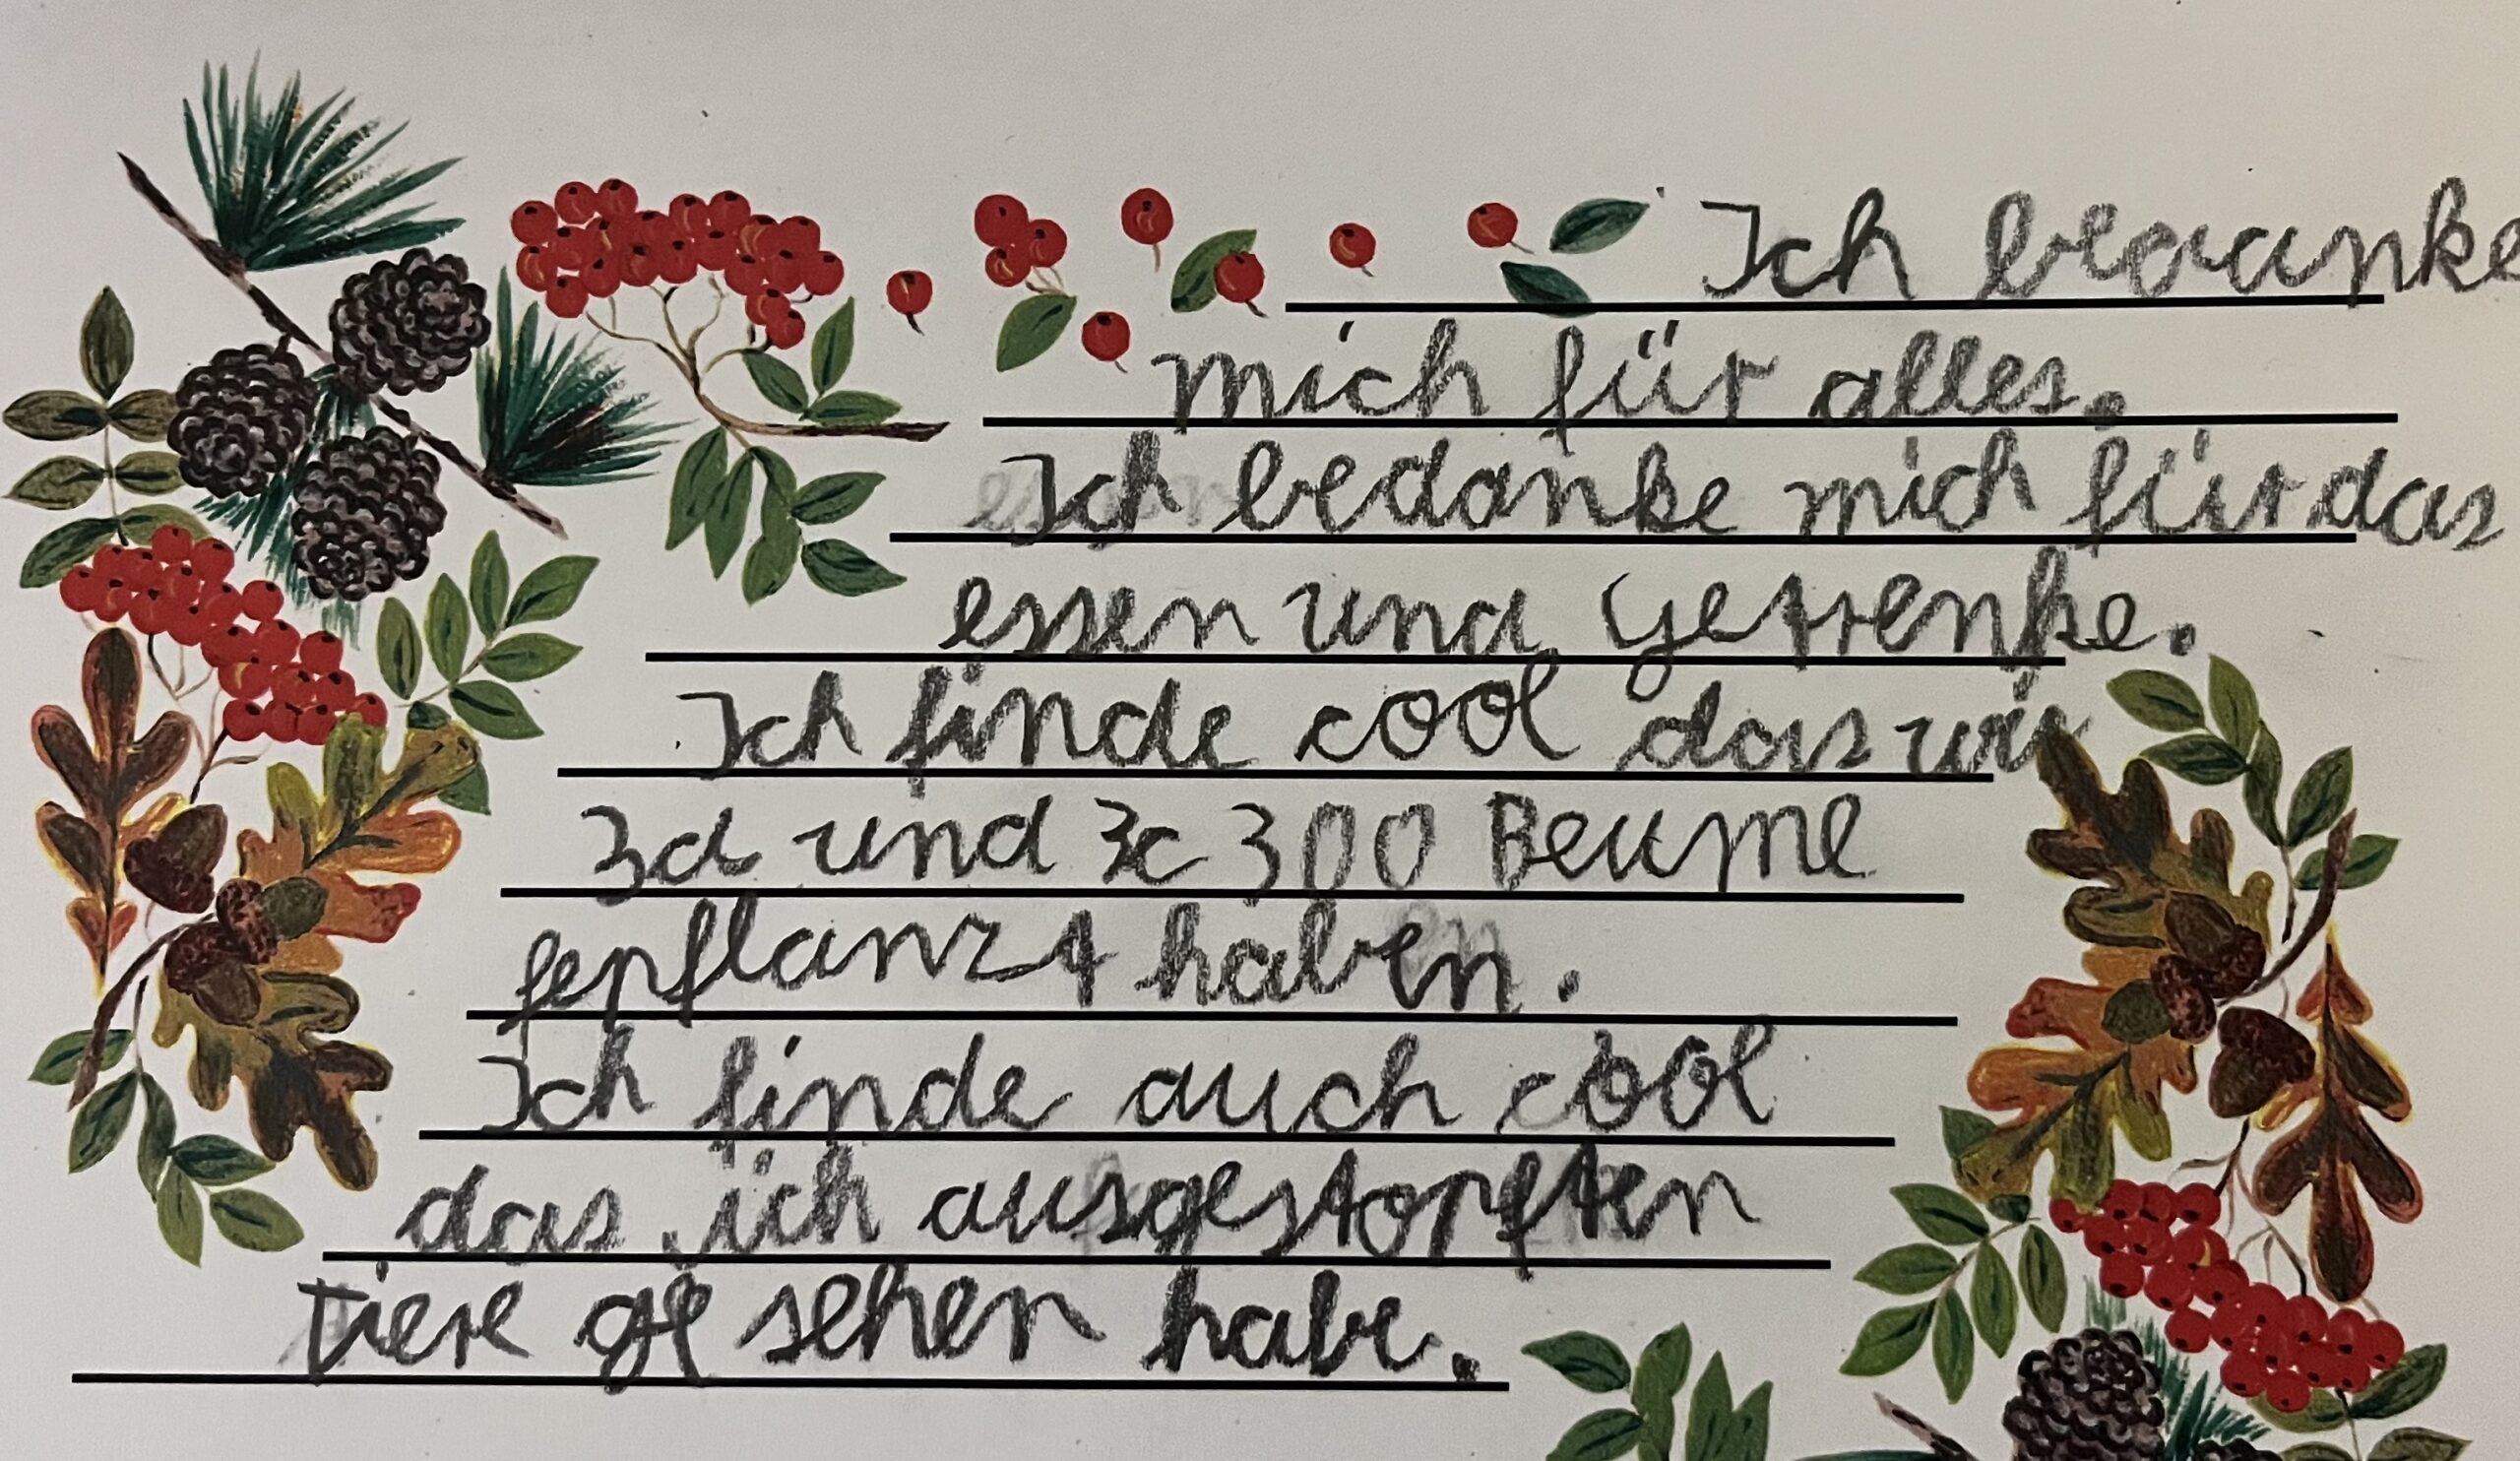 Ich bedanke
mich für alles.
Ich bedanke mich für das
essen und Getrenke.
Ich finde cool das wir
3a und 3c 300 Beume
gepflanzt haben.
Ich finde auch cool
das ich ausgestopften
tiere ge sehen habe.